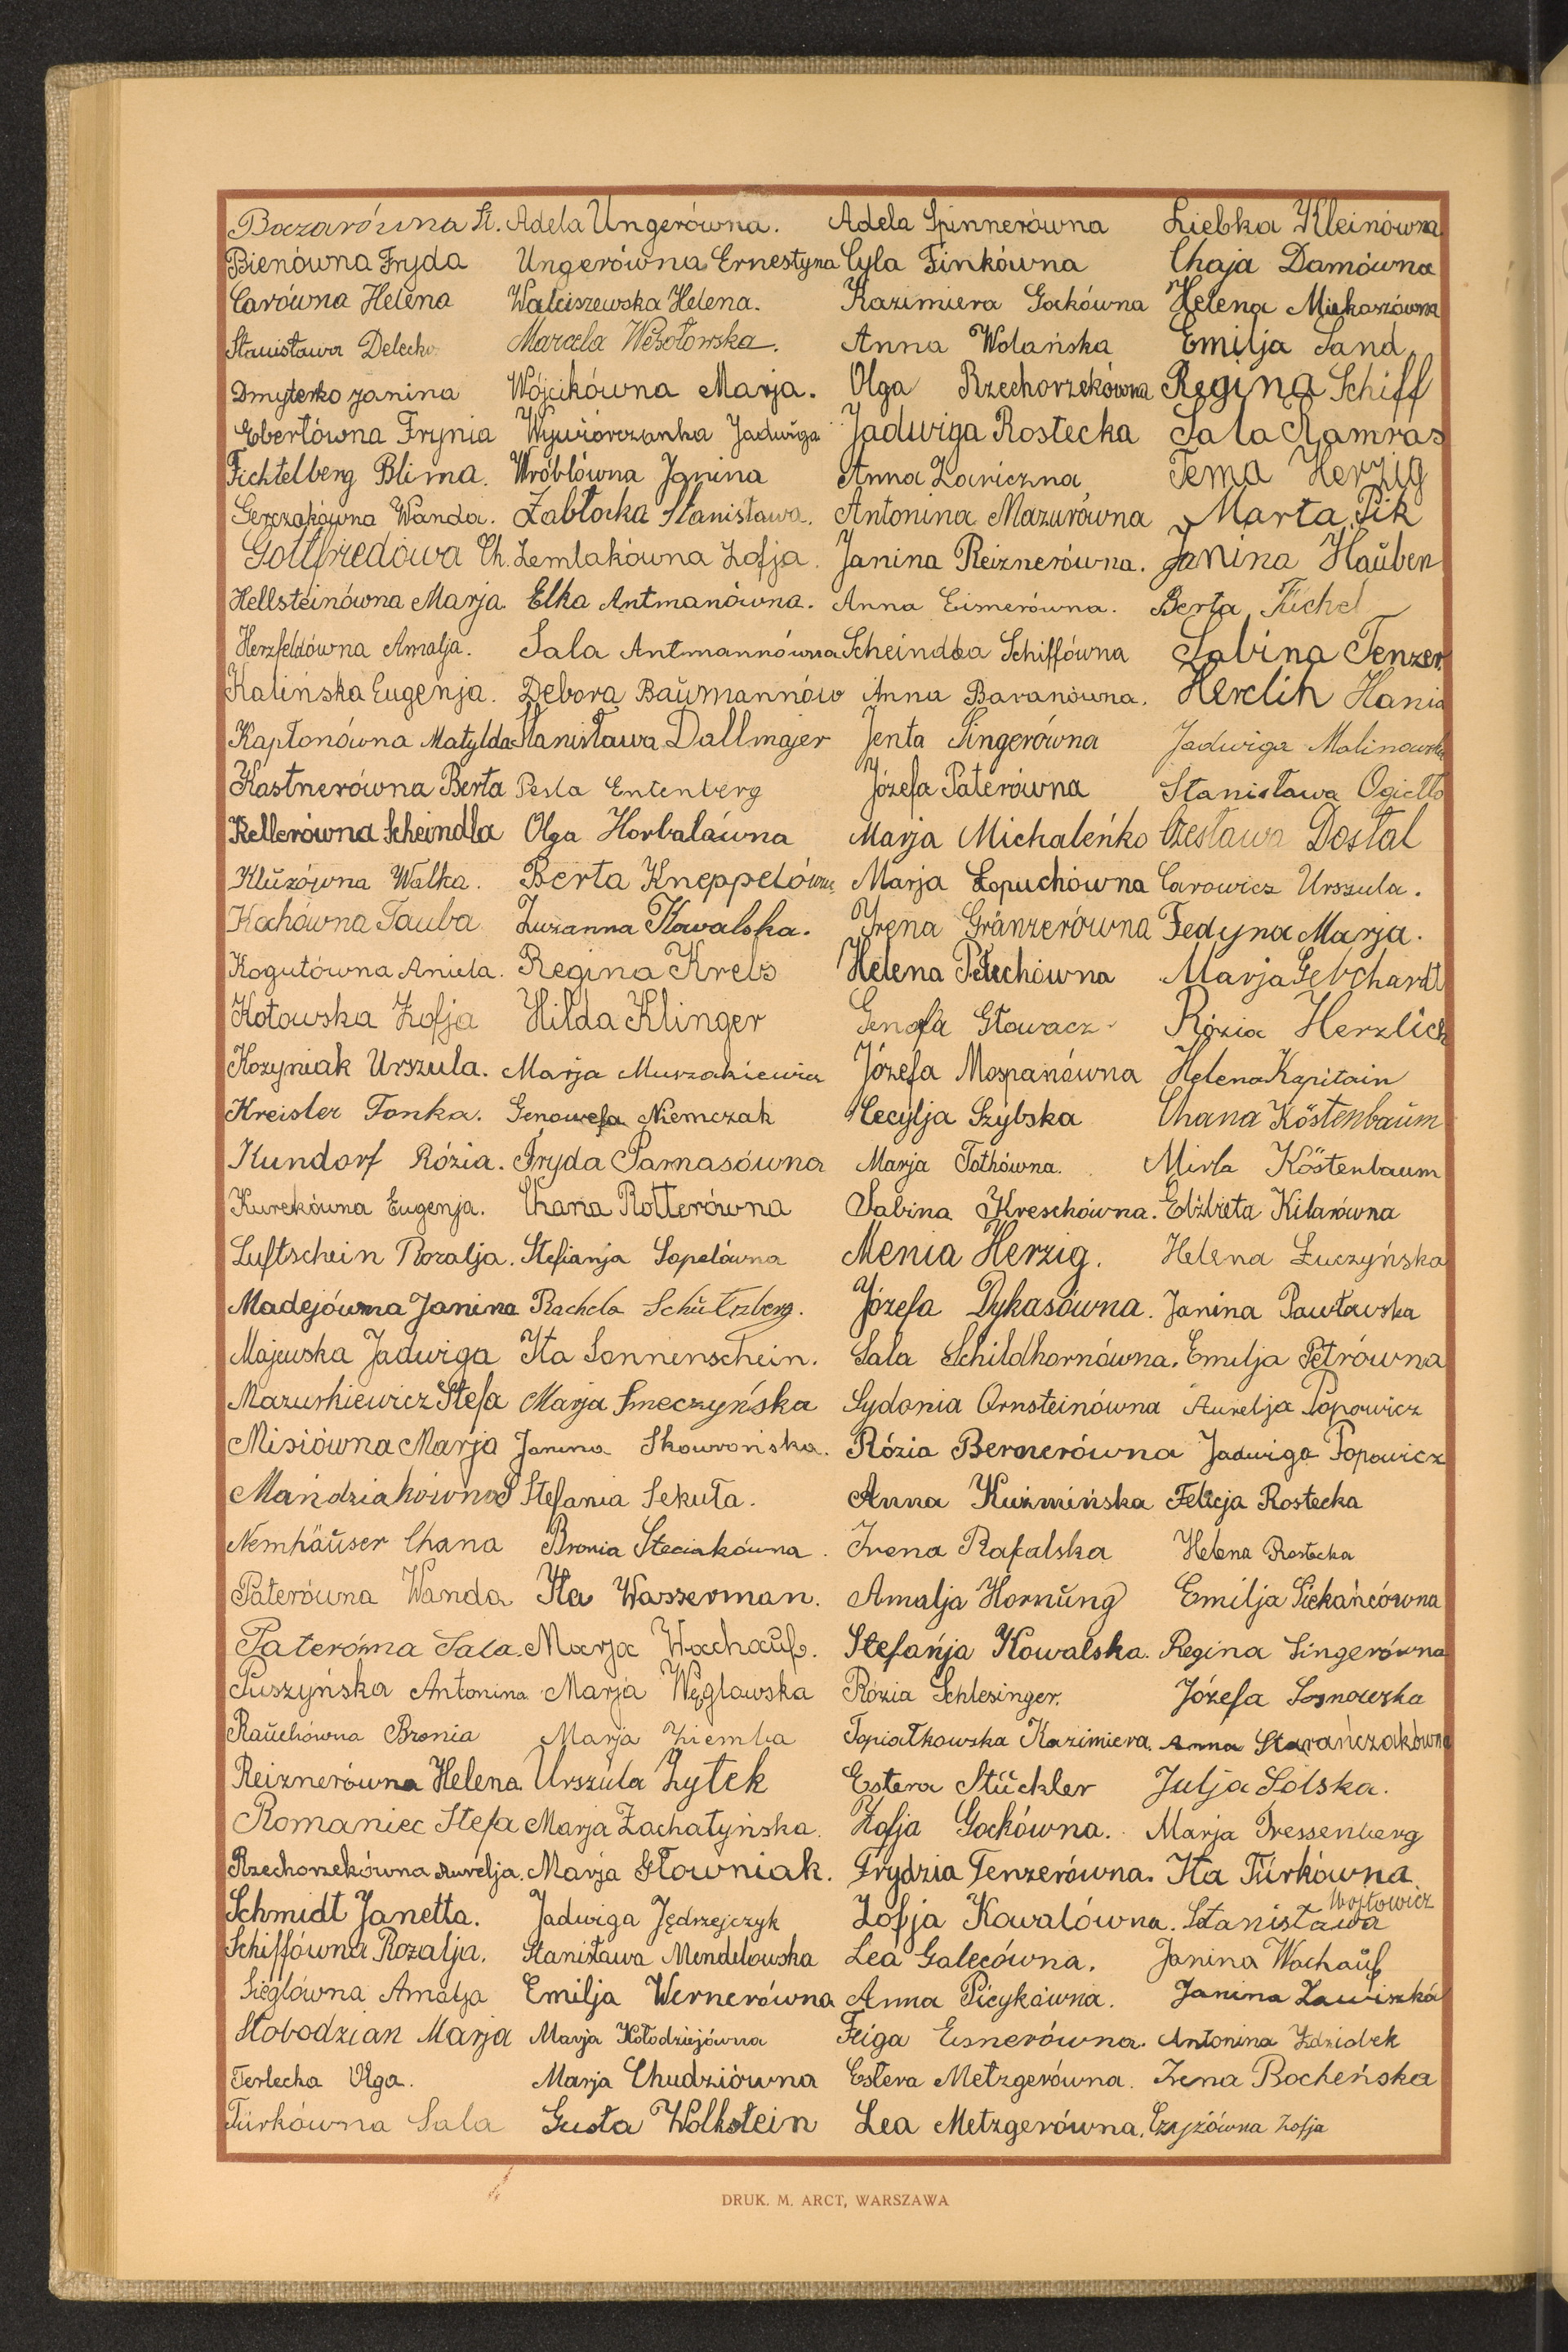 Baczarówna St.
Bienówna Fryda
Carówna Helena
Stanisława Delecka
Dmyterko Janina
Ebertówna Frynia
Fichtelberg Blima.
Gerczakówna Wanda.
Gottfriedowa Ch.
Hellsteinówna Marja
Herzfeldówna Amalja.
Kalińska Eugenja.
Kapłonówna Matylda
Kastnerówna Berta
Kellerówna Scheindla
Kluzówna Walka.
Kochówna Tauba
Kogutówna Aniela.
Kotowska Zofja
Kozyniak Urszula.
Kreisler Tonka.
Kundorf Rózia.
Kurekówna Eugenja.
Luftschein Rozalja.
Madejówna Janina
Majewska Jadwiga
Mazurkiewicz Stefa
Misiówna Marja
Mańdziakówna S
Nemhäuser Chana
Paterówna Wanda
Paterówna Sala.
Puszyńska Antonina
Rauchówna Bronia
Reiznerówna Helena
Romaniec Stefa
Rzechorzekówna Aurelja.
Schmidt Janetta.
Schiffówna Rozalja.
Sieglówna Amalja
Słobodzian Marja
Terlecka Olga.
Türkówna Sala
Adela Ungerówna.
Ungerówna Ernestyna
Walciszewska Helena.
Marcela Wesołowska.
Wójcikówna Marja.
Wywiórczanka Jadwiga
Wróblówna Janina
Żabłocka Stanisława.
Zemlakówna Zofja.
Elka Antmanówna.
Sala Antmannówna
Debora Baumannów
Stanisława Dallmajer
Pesla Entenberg
Olga Horbalówna
Berta Kneppelówna
Zuzanna Kowalska.
Regina Krebs
Hilda Klinger
Marja Muszakiewicz
Genowefa Niemczak
Fryda Parnasówna
Chana Rotterówna
Stefanja Sopelówna
Rachela Schützberg.
Ita Sonnenschein.
Marja Smeczyńska
Janina Skowrońska.
Stefania Sekuła.
Bronia Steciakówna.
Ita Wasserman.
Marja Wachauf.
Marja Węglowska
Marja Ziemba
Urszula Zytek
Marja Zachatyńska.
Marja Głowniak.
Jadwiga Jędrzejczyk
Stanisława Mendelowska
Emilja Wernerówna
Marja Kołodziejówna
Marja Chudziówna
Gusta Wolkstein
Adela Spinnerówna
Cyla Finkówna
Kazimiera Gockówna
Anna Wolańska
Olga Rzechorzekówna
Jadwiga Rostecka
Anna Zariczna
Antonina Mazurówna
Janina Reiznerówna.
Anna Eisnerówna.
Scheindla Schiffówna
Anna Baranówna.
Jenta Singerówna
Józefa Paterówna
Marja Michaleńko
Marja Łopuchówna
Irena Gränzerówna
Helena Pełechówna
Genofa Głowacz
Józefa Mospanówna
Cecylja Szybska
Marja Tothówna.
Sabina Kreschówna.
Menia Herzig.
Józefa Dykasówna.
Sala Schildhornówna.
Sydonia Ornsteinówna
Rózia Bernerówna
Anna Kuźmińska
Irena Rafalska
Amalja Hornung
Stefańja Kowalska.
Rózia Schlesinger.
Topiałkowska Kazimiera.
Estera Stückler
Zofja Gockówna.
Frydzia Tenzerówna.
Zofja Kowalówna.
Lea Galecówna.
Anna Picykówna.
Feiga Eisnerówna.
Estera Metzgerówna.
Lea Metzgerówna.
Liebka Kleinówna
Chaja Damówna
Helena Miekoszówna
Emilja Sand
Regina Schiff
Sala Ramras
Tema Herzig
Marta Pik
Janina Hauben
Berta Fichel
Sabina Tenzer.
Herclih Hania
Jadwiga Malinowska
Stanisława Ogiełło
Czesława Dostal
Carowicz Urszula.
Fedyna Marja.
Marja Gebhardt
Rózia Herzlich
Helena Kapitain
Chana Köstenbaum
Mirla Köstenbaum
Elżbieta Kilarówna
Helena Łuczyńska
Janina Pawławska
Emilja Petrówna
Aurelja Popowicz
Jadwiga Popowicz
Felicja Rostecka
Helena Rostecka
Emilja Siekańcówna
Regina Singerówna
Józefa Sosnowska
Anna Starańczakówna
Julja Solska.
Marja Tressenberg
Ita Türkówna
Stanisława Wojtowicz
Janina Wachauf
Janina Zawiszka
Antonina Zdziobek
Irena Bocheńska
Czyjżówna Zofja
DRUK. M. ARCT, WARSZAWA